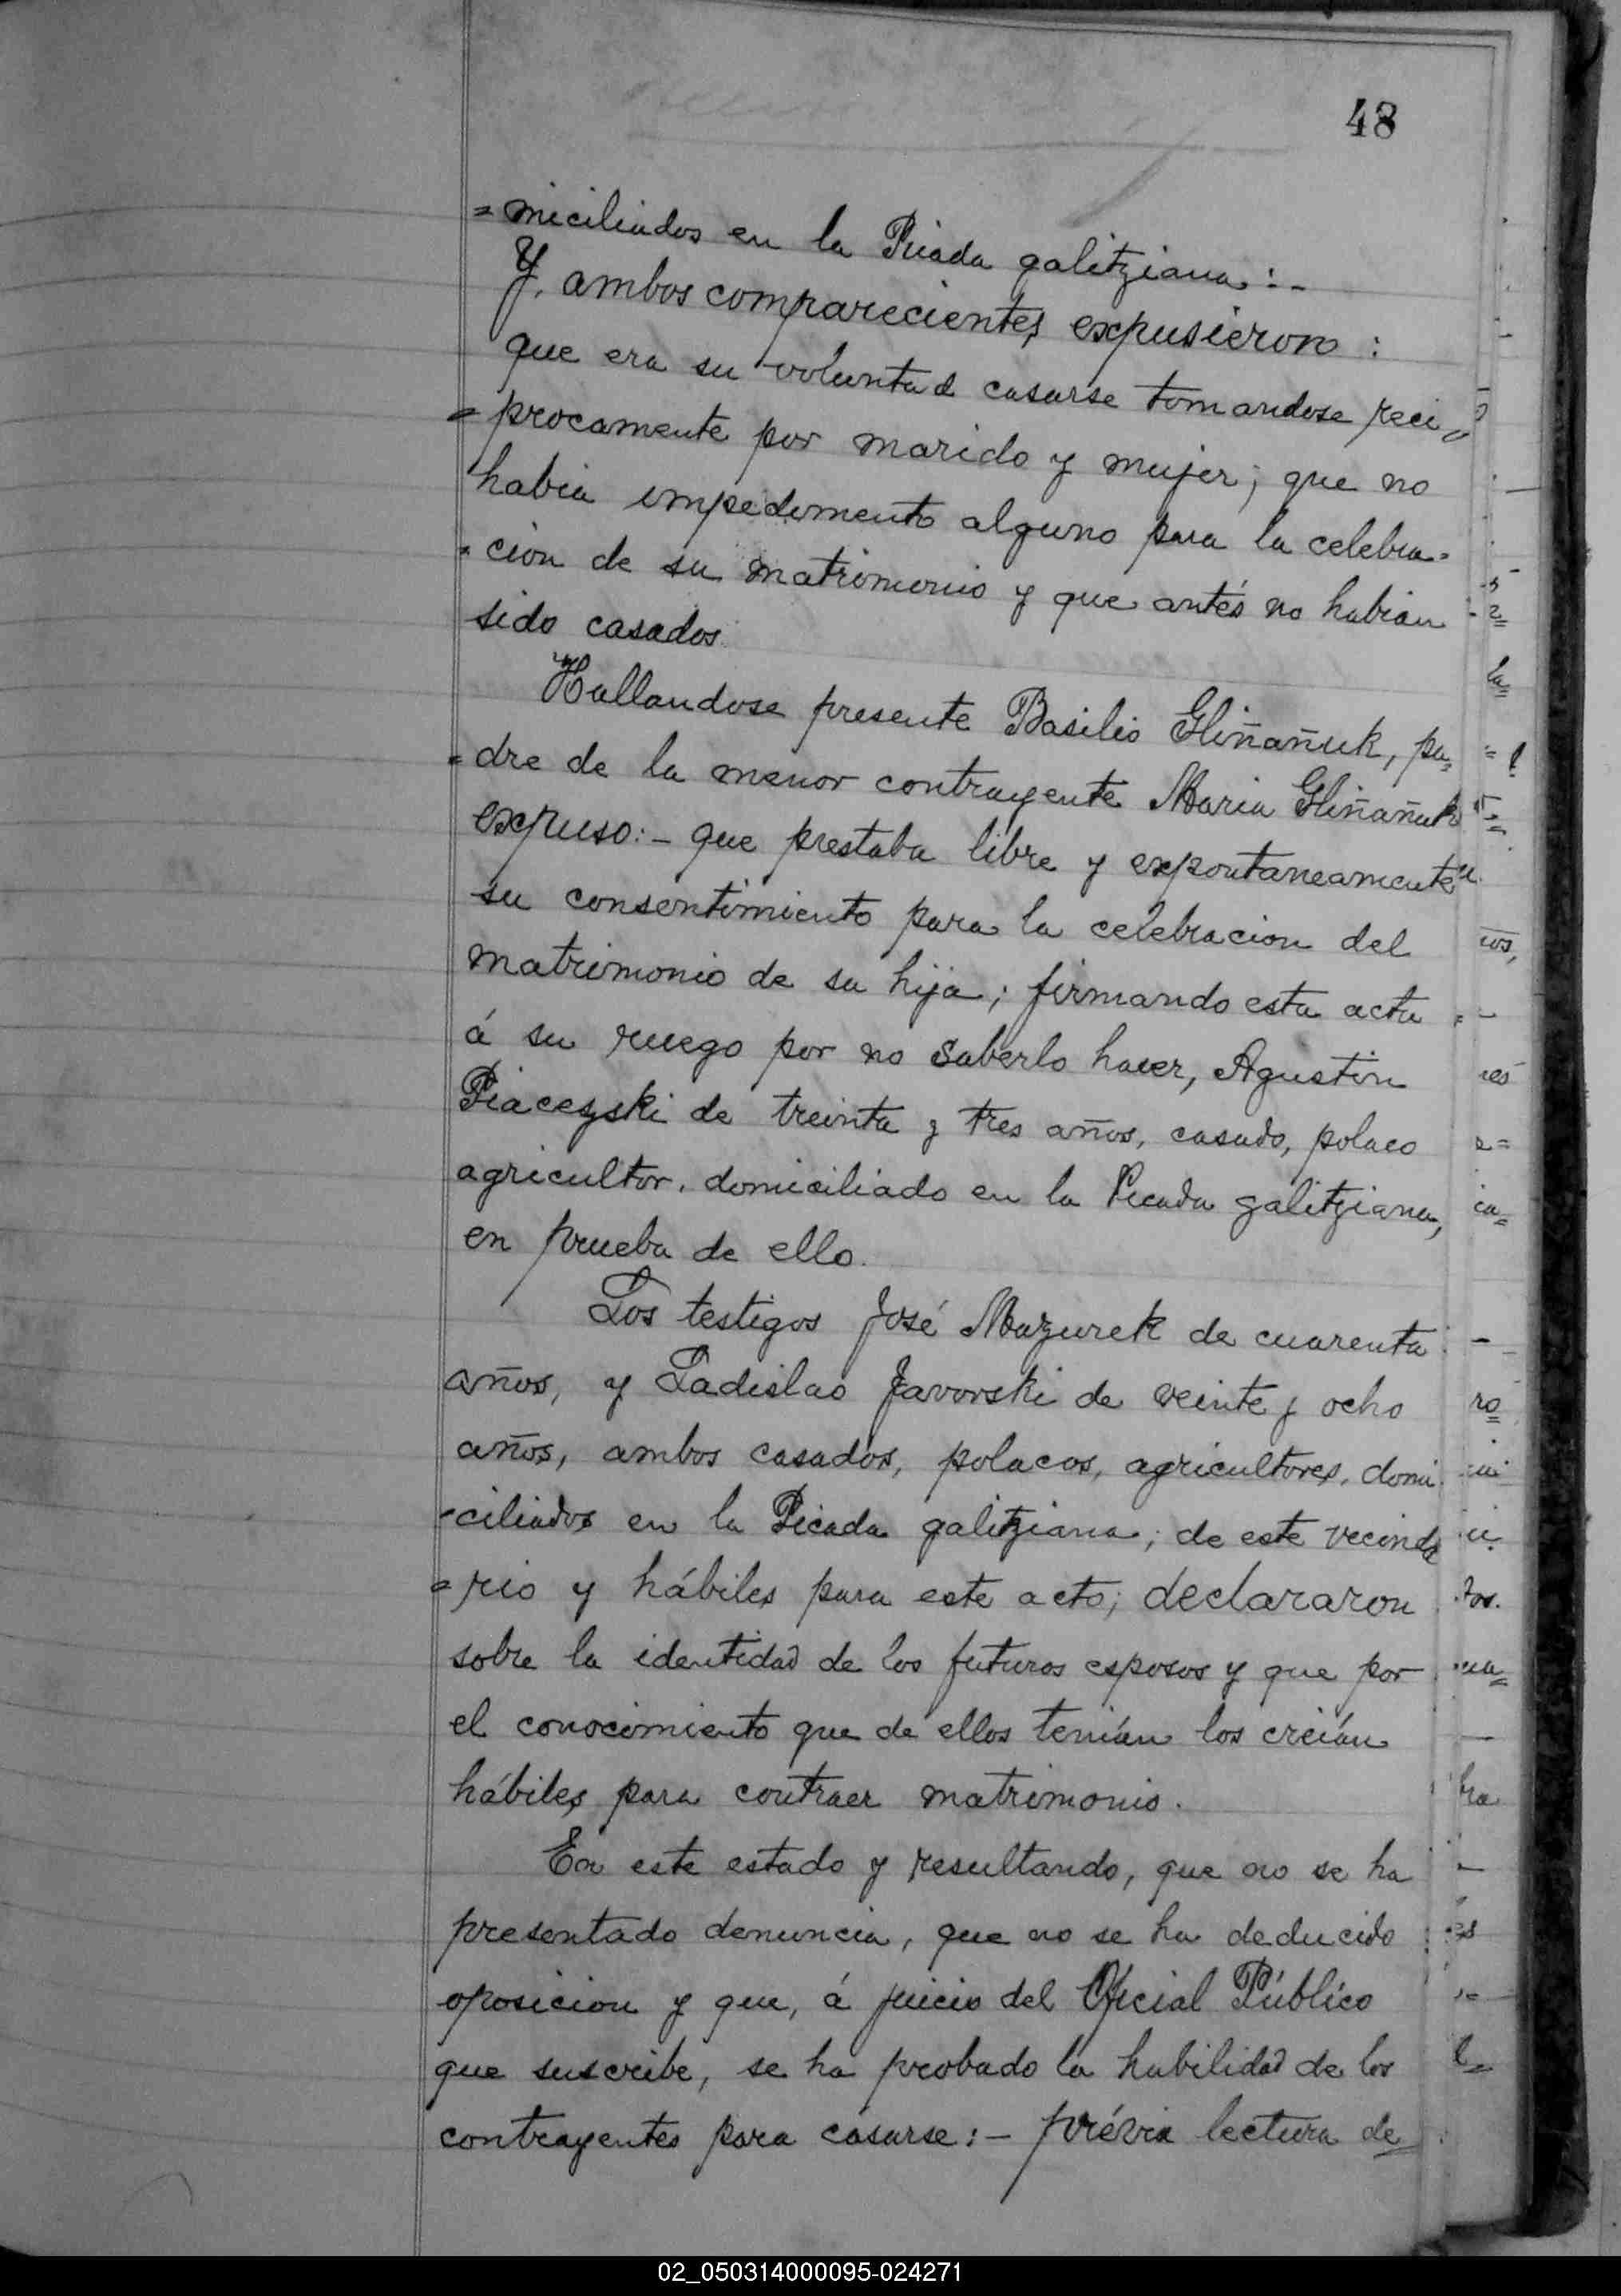 48
= miciliados en la Picada galitziana :-
Y, ambos comparecientes expusieron :
que era su voluntad casarse tomandose reci„
= procamente por marido y mujer; que no
habia impedimento alguno para la celebra-
= cion de su matrimonio y que antés no habian
sido casados.
Hallandose presente Basilio Gliñañuk, pa=
= dre de la menor contrayente Maria Gliñañuk
expuso:- que prestaba libre y expontaneamente
su consentimiento para la celebracion del
matrimonio de su hija; firmando esta acta
á su ruego por no saberlo hacer, Agustin
Piacezski de treinta y tres años, casado, polaco
agricultor, domiciliado en la Picada galitziana,
en prueba de ello.
Los testigos José Mazurek de cuarenta
años, y Ladislao Javorski de veinte y ocho
años, ambos casados, polacos, agricultores, domi
-ciliados en la Picada galitziana; de este vecinda
= rio y hábiles para este acto; declararon
sobre la identidad de los futuros esposos y que por
el conocimiento que de ellos tenían los creían
hábiles para contraer matrimonio.
En este estado y resultando, que no se ha
presentado denuncia, que no se ha deducido
oposicion y que, á juicio del Oficial Público
que suscribe, se ha probado la habilidad de los
contrayentes para casarse:- prévia lectura de
02_050314000095-024271